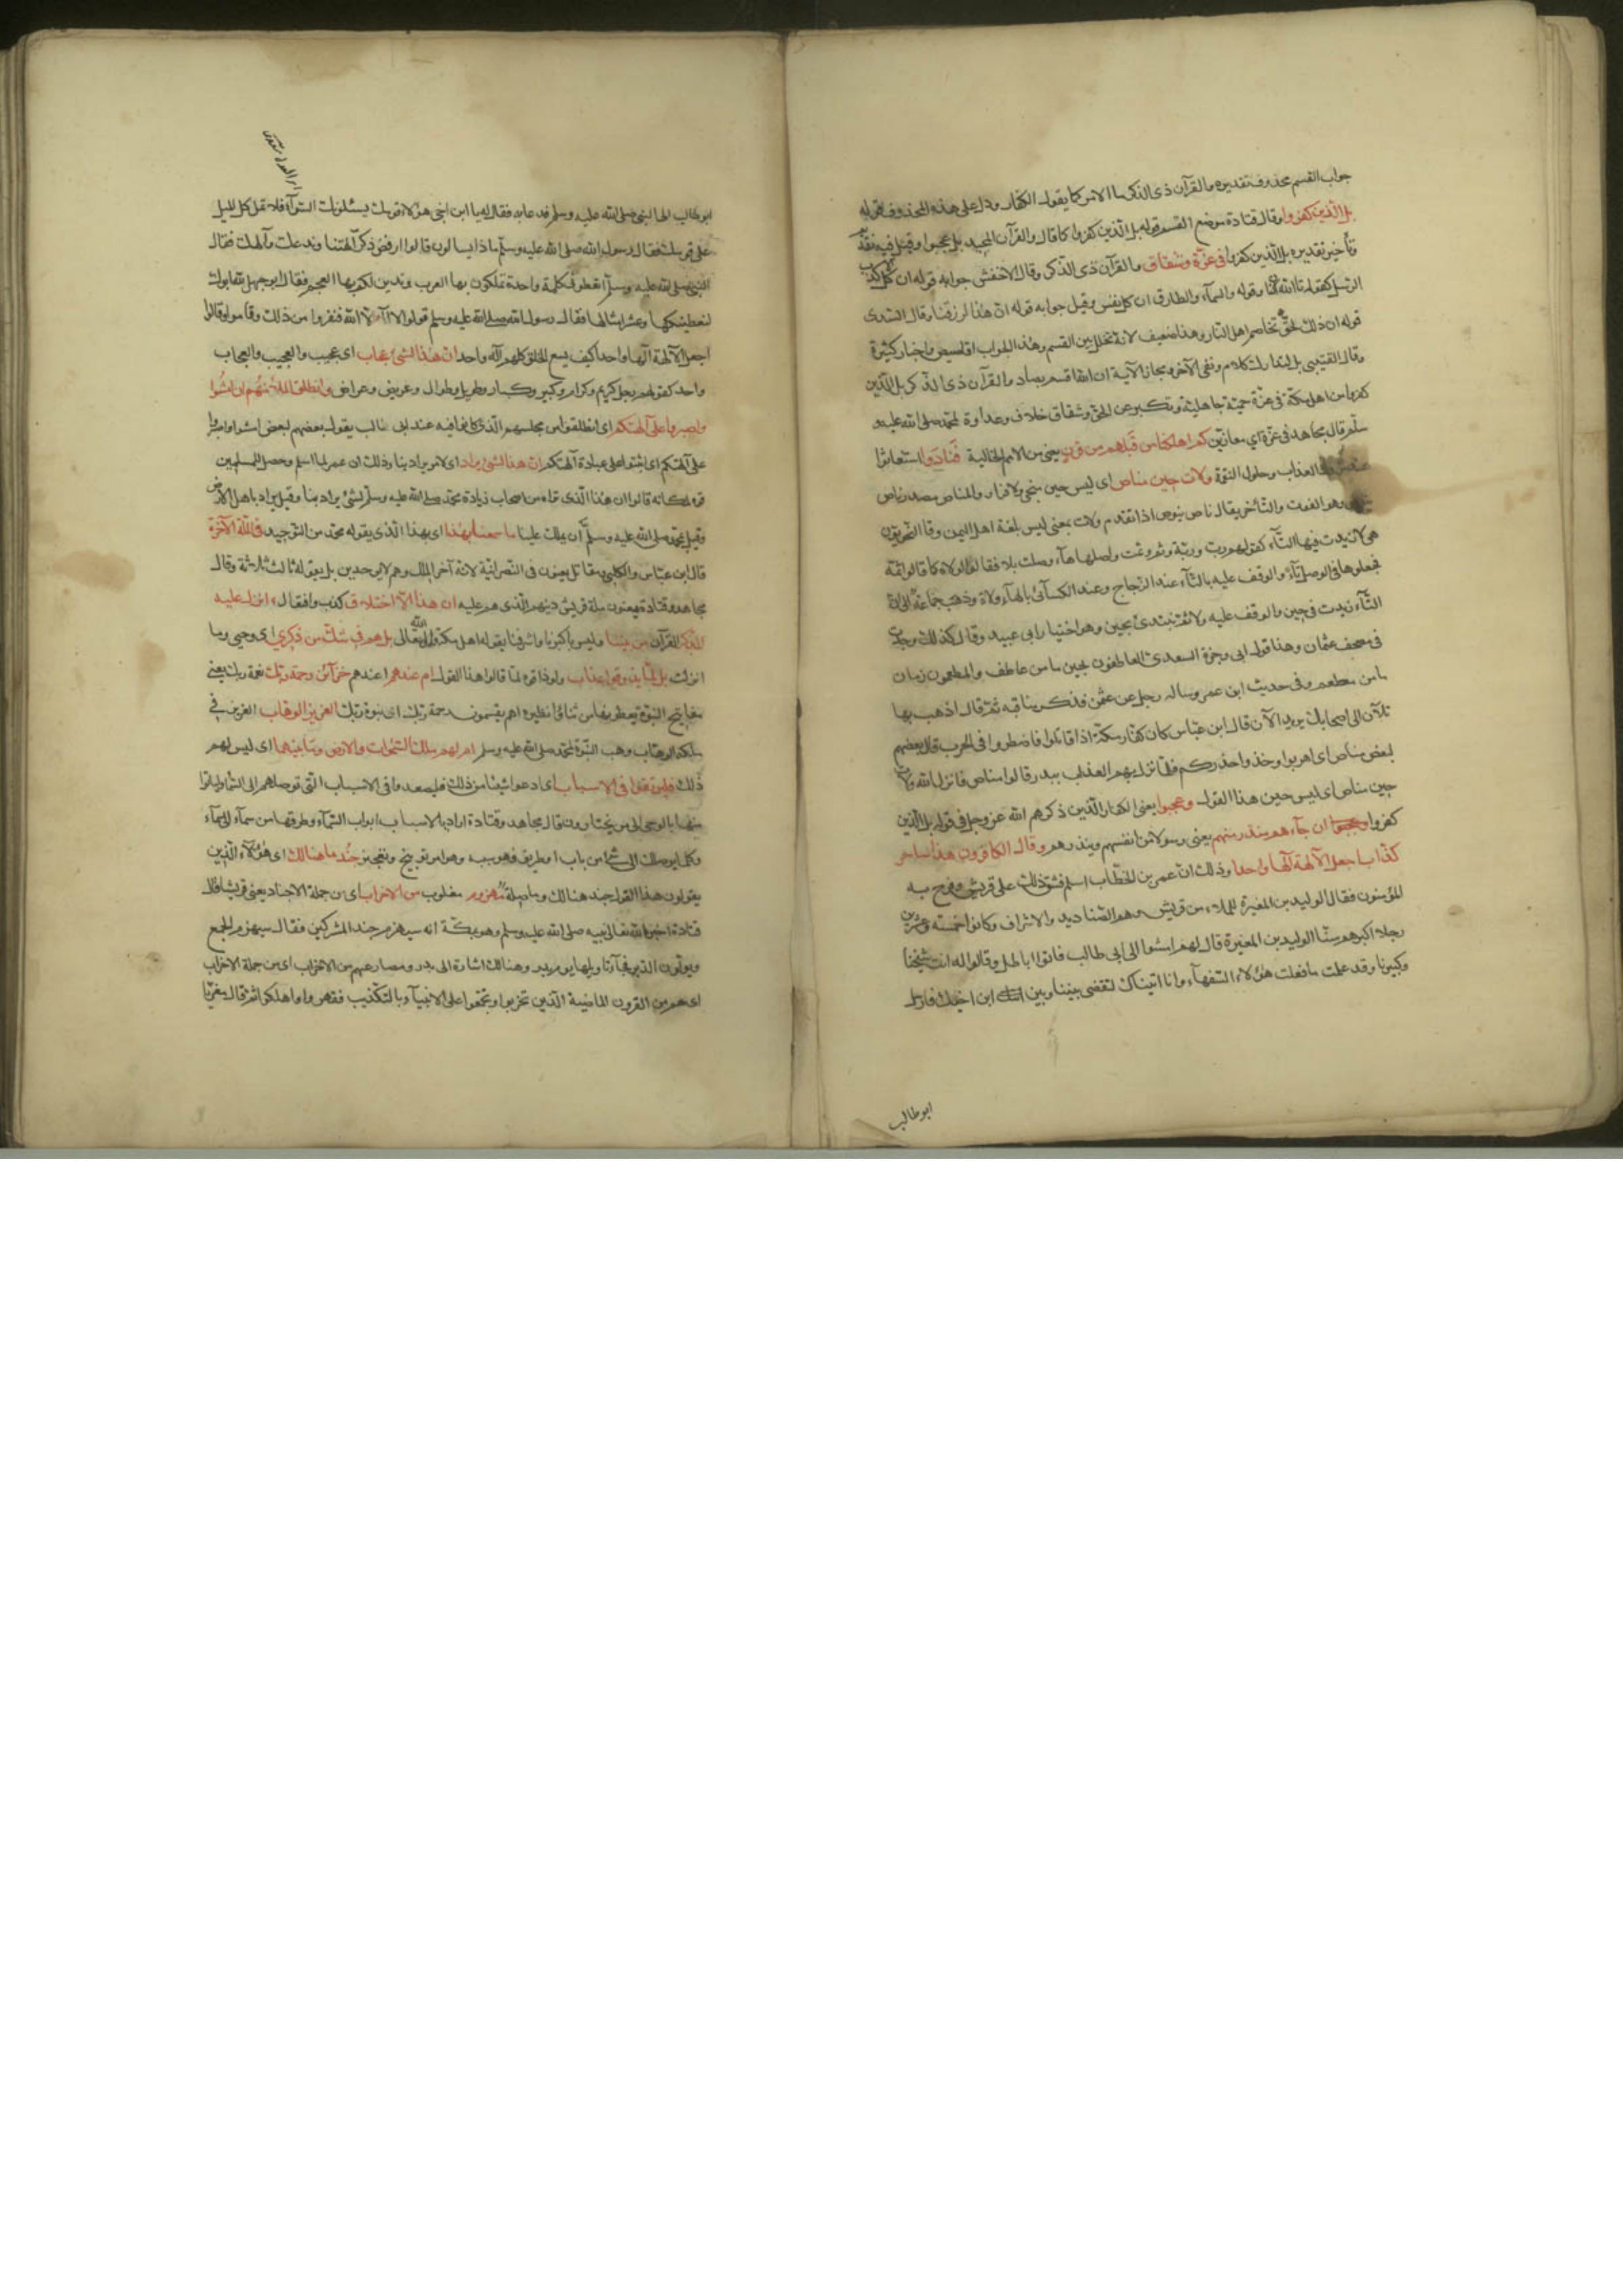 جواب القسم محذوف تقديره والقرآن ذي الذكر ما الامر كما يقول الكفار ودل على هذه المحذوف قوله
بل الذين كفروا وقال قتادة موضع القسم قوله بل الذين كفروا كما قال والقرآن المجيد بل عجبوا وقيل فيه تقديم
وتأخير تقديره بل الذين كفروا في عزة وشقاق والقرآن ذي الذكر وقال الاخفش جوابه قوله ان كل الا كذب
الرسل كقوله تالله ان كنا وقوله والسماء والطارق ان كل نفس وقيل جوابه قوله ان هذا لرزقنا وقال السدي
قوله ان ذلك لحق تخاصم اهل النار وهذا ضعيف لانه تخلل بين القسم وهذا الجواب اقاصيص واخبار كثيرة
وقال القتيبي بل لتدارك كلام ونفي الآخر ومجاز الآية ان الله اقسم بصاد والقرآن ذي الذكر بل الذين
كفروا من اهل مكة في عزة حمية جاهلية وتكبر عن الحق وشقاق خلاف وعداوة لمحمد صلى الله عليه و
سلم قال مجاهد في عزة اي معازين كم اهلكنا من قبلهم من قرن يعني من الامم الخالية فنادوا استغاثوا
العذاب وحلول النقمة ولات حين مناص اي ليس حين منجى ولا فرار والمناص مصدر ناص
وهو الفوت والتأخر يقال ناص ينوص اذا تقدم ولات بمعنى ليس بلغة اهل اليمن وقال النحويون
هي لا زيدت فيها التاء كقولهم رب وربة وثم وثمت واصلها هاء وصلت بلا فقالوا لاه كما قالوا ثمة
فجعلوها في الوصل تاء والوقف عليه بالتاء عند الزجاج وعند الكسائي بالهاء ولاه وذهب جماعة الى ان
التاء زيدت في حين والوقف عليه ولا ثم تبتدئ بحين وهو اختيار ابي عبيد وقال كذلك وجدت
في مصحف عثمان وهذا قول ابي وجزة السعدي العاطفون بحين ما من عاطف والمطعمون زمان
ما من مطعم وفي حديث ابن عمر وساله رجل عن عثمن فذكر مناقبه ثم قال اذهب بها
تلآن الى اصحابك يريد الآن قال ابن عباس كان كفار مكة اذا قاتلوا فاضطروا في الحرب قال بعضهم
لبعض مناص اي اهربوا وخذوا حذركم فلما نزل بهم العذاب ببدر قالوا مناص فانزل الله ولات
حين مناص اي ليس حين هذا القول وعجبوا يعني الكفار الذين ذكرهم الله عز وجل في قوله بل الذين
كفروا وعجبوا ان جاءهم منذر منهم يعني رسولا من انفسهم وينذرهم وقال الكافرون هذا ساحر
كذاب اجعل الآلهة الها واحدا وذلك ان عمر بن الخطاب اسلم فشق ذلك على قريش وفرح به
المؤمنون فقال الوليد بن المغيرة للملاء من قريش وهم الصناديد والاشراف وكانوا خمسة وعشرين
رجلا اكبرهم سنا الوليد بن المغيرة قال لهم امشوا الى ابي طالب فاتوا ابا طالب وقالوا له انت شيخنا
وكبيرنا وقد علمت ما فعلت هؤلاء السفهاء وانا اتيناك لتقضي بيننا وبين ابن اخيك فارسل
ابوطالب
ابوطالب الى النبي صلى الله عليه وسلم فدعا به فقال له يا ابن اخي هؤلاء قومك يسئلونك السواء فلا تمل كل الميل
على قومك فقال رسول الله صلى الله عليه وسلم ماذا يسالون قالوا ارفض ذكر آلهتنا وندعك وآلهك فقال
النبي صلى الله عليه وسلم اتعطوني كلمة واحدة تملكون بها العرب وتدين لكم بها العجم فقال ابو جهل لله ابوك
لنعطينكها وعشر امثالها فقال رسول الله صلى الله عليه وسلم قولوا لا اله الا الله فنفروا من ذلك وقاموا وقالوا
اجعل الآلهة الها واحدا كيف يسع الخلق كلهم اله واحد ان هذا لشئ عجاب اي عجيب والعجيب والعجاب
واحد كقولهم رجل كريم وكرام وكبير وكبار وطويل وطوال وعريض وعراض وانطلق الملأ منهم ان امشوا
واصبروا على آلهتكم اي انطلقوا من مجلسهم الذي كانوا فيه عند ابي طالب يقول بعضهم لبعض امشوا واصبروا
على آلهتكم اي اثبتوا على عبادة آلهتكم ان هذا لشئ يراد اي لامر يراد بنا وذلك ان عمر لما اسلم وحصل للمسلمين
قوة بمكانه قالوا ان هذا الذي نراه من اصحاب زيادة محمد صلى الله عليه وسلم لشئ يراد بنا وقيل يراد باهل الارض
وقيل بمحمد صلى الله عليه وسلم ان يملك علينا ما سمعنا بهذا اي بهذا الذي يقوله محمد من التوحيد في الملة الآخرة
قال ابن عباس والكلبي ومقاتل يعنون في النصرانية لانه آخر الملل وهم لا يوحدون بل يقولون ثالث ثلاثة وقال
مجاهد وقتادة يعنون ملة قريش دينهم الذي هم عليه ان هذا الا اختلاق كذب وافتعال ءانزل عليه
الذكر القرآن من بيننا وليس باكبرنا واشرفنا يقوله اهل مكة قال الله تعالى بل هم في شك من ذكري اي وحيي وما
انزلت بل لما يذوقوا عذاب ولو ذاقوه لما قالوا هذا القول ام عندهم اعندهم خزآئن رحمة ربك نعمة ربك يعني
مفاتيح النبوة يعطونها من شاؤا نظيره اهم يقسمون رحمة ربك اي نبوة ربك العزيز الوهاب العزيز في
ملكه الوهاب وهب النبوة لمحمد صلى الله عليه وسلم ام لهم ملك السموات والارض وما بينهما اي ليس لهم
ذلك فليرتقوا في الاسباب اي ادعوا شيئا من ذلك فليصعدوا في الاسباب التي توصلهم الى السماء ولياتوا
منها بالوحي الى من يختارون قال مجاهد وقتادة اراد بالاسباب ابواب السماء وطرقها من سماء الى سماء
وكل ما يوصلك الى شئ من باب او طريق فهو سببه وهو امر توبيخ وتعجيز جند ما هنالك اي هؤلاء الذين
يقولون هذا القول جند هنالك وما صلة مهزوم مغلوب من الاحزاب اي من جملة الاجناد يعني قريشا قال
قتادة اخبر الله تعالى نبيه صلى الله عليه وسلم وهو بمكة انه سيهزم جند المشركين فقال سيهزم الجمع
ويولون الدبر فجاء تاويلها يوم بدر وهنالك اشارة الى بدر ومصارعهم من الاحزاب اي من جملة الاحزاب
اي هم من القرون الماضية الذين تحزبوا وتجمعوا على الانبياء بالتكذيب فقهروا واهلكوا ثم قال معزيا